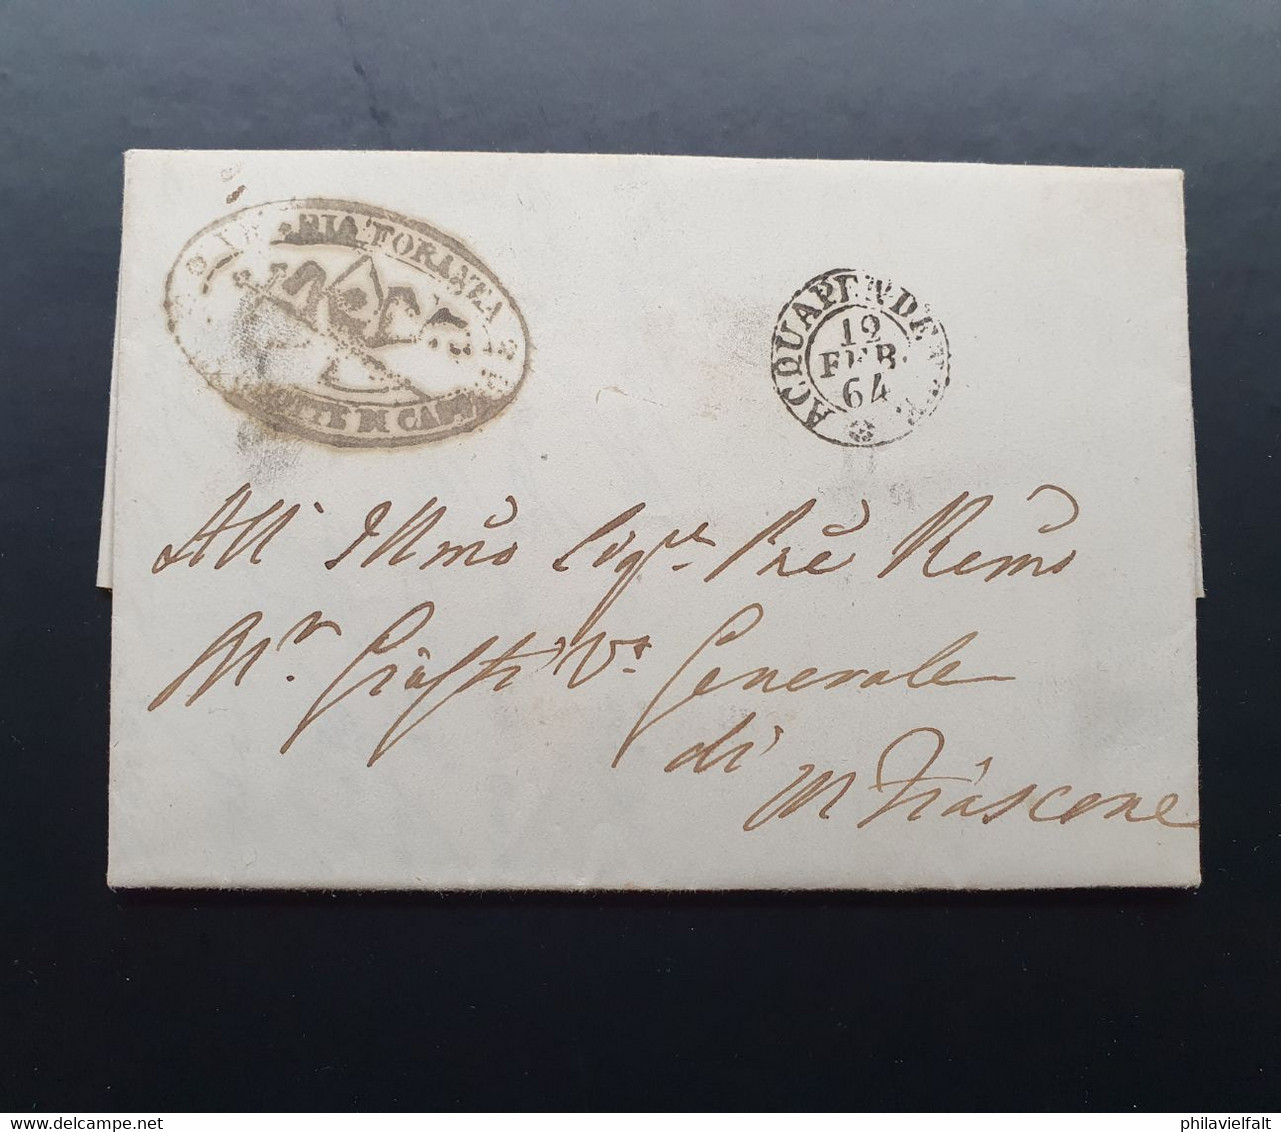 VICARIA FORANEA
DI CAPO
ACQUAPENDENTE
12
FEB.
64
All' Illmo Sigre Pre Remo
Mr. Giusti Vo Generale
di
M Fiascone
www.delcampe.net
philavielfalt